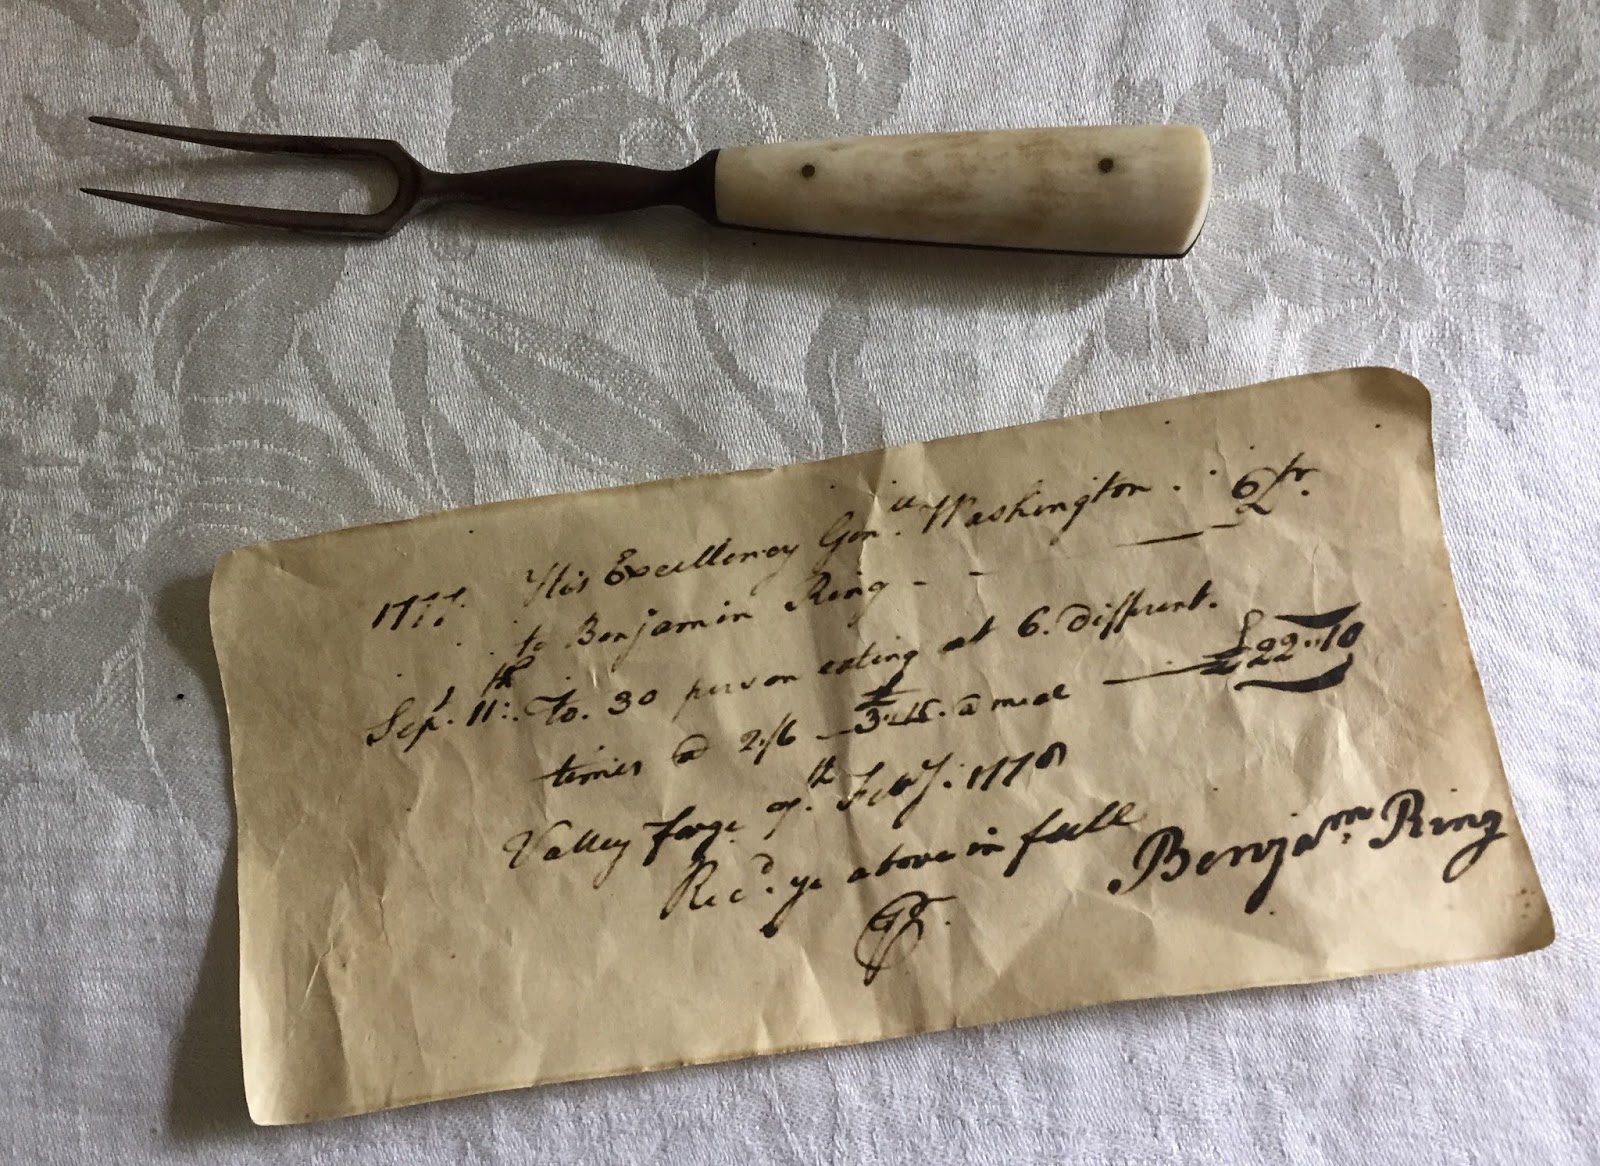 1777. His Excellency Gen.ll Washington . . Dr.
to Benjamin Ring - -
Sep.t 11th: To. 30 person eating at 6. different.
times @ 2/6 £3..15. @ meal £22..10
Valley forge 7.th Feb.y: 1778
Rec.d ye above in full
Benja.m Ring